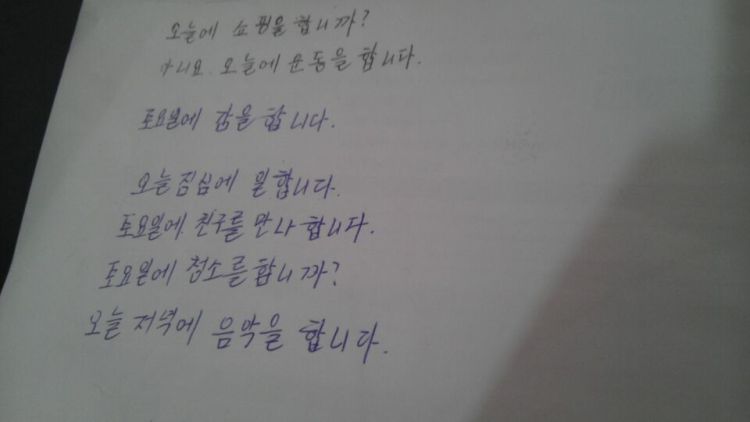 오늘에 쇼핑을 합니까?
아니요. 오늘에 운동을 합니다.
토요일에 잠을 합니다.
오늘 점심에 일합니다.
토요일에 친구를 만나 합니다.
토요일에 청소를 합니까?
오늘 저녁에 음악을 합니다.